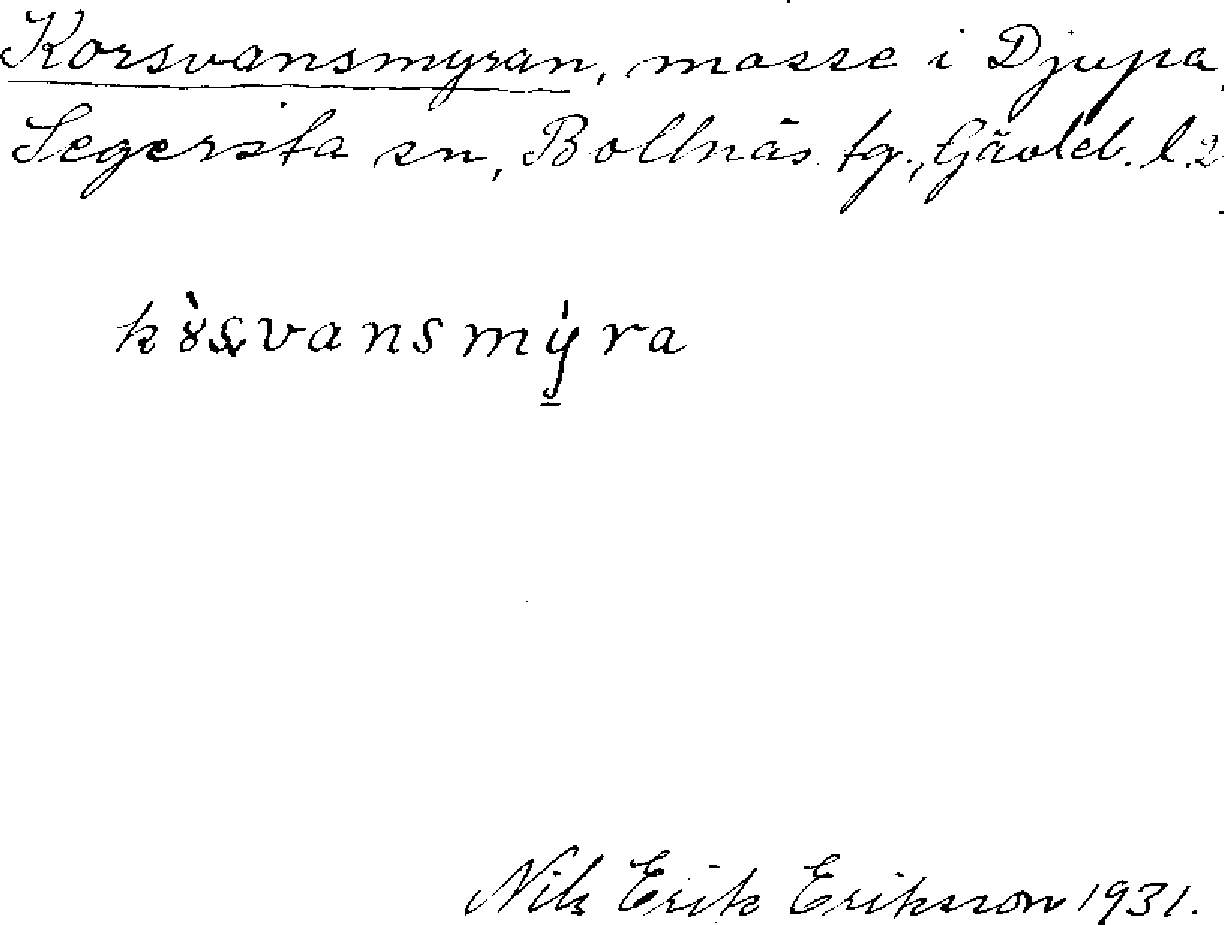 Korsvansmyran, mosse i Djupa,
Segersta sn, Bollnäs tg., Gävleb. l
kȣ̀s̨vansmý̱ra
Nils Erik Eriksson 1931.